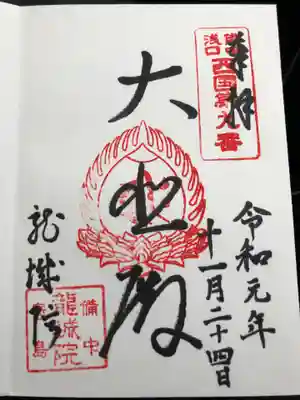 奉拝
浅口
西国第九番
令和元年
十一月二十四日
大悲殿
龍城院
備中
龍城院
寄島